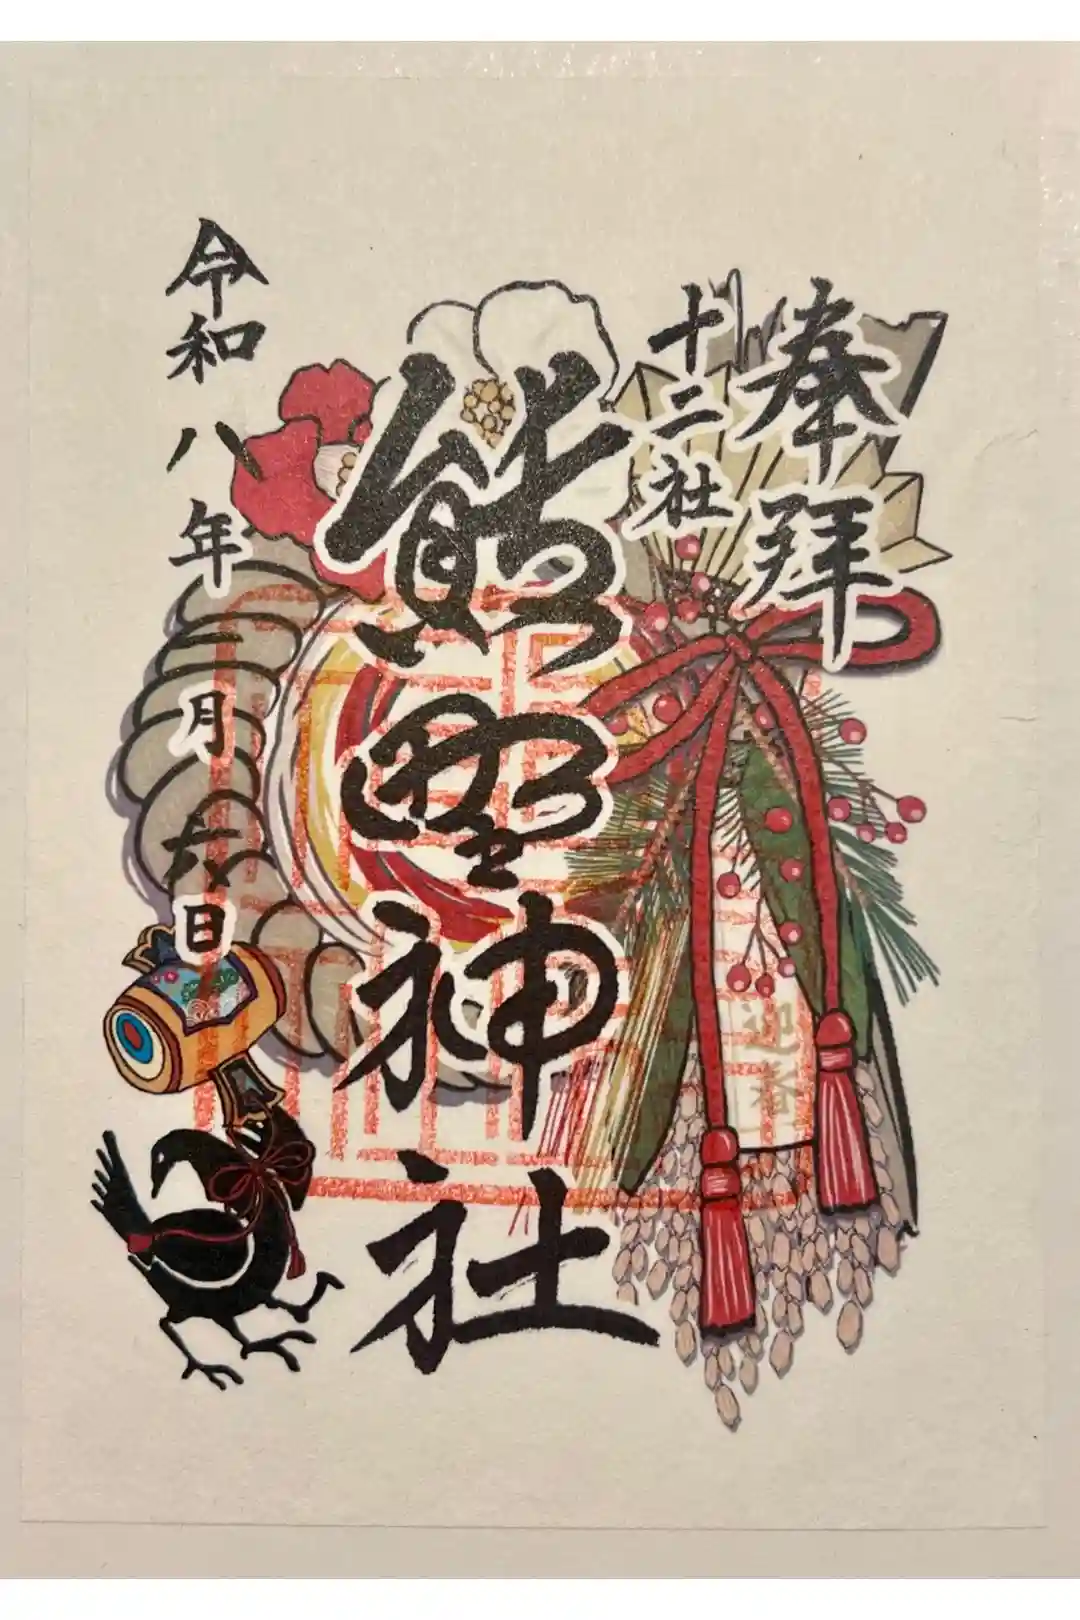 奉拝
十二社
熊野神社
令和八年 月六日
迎春